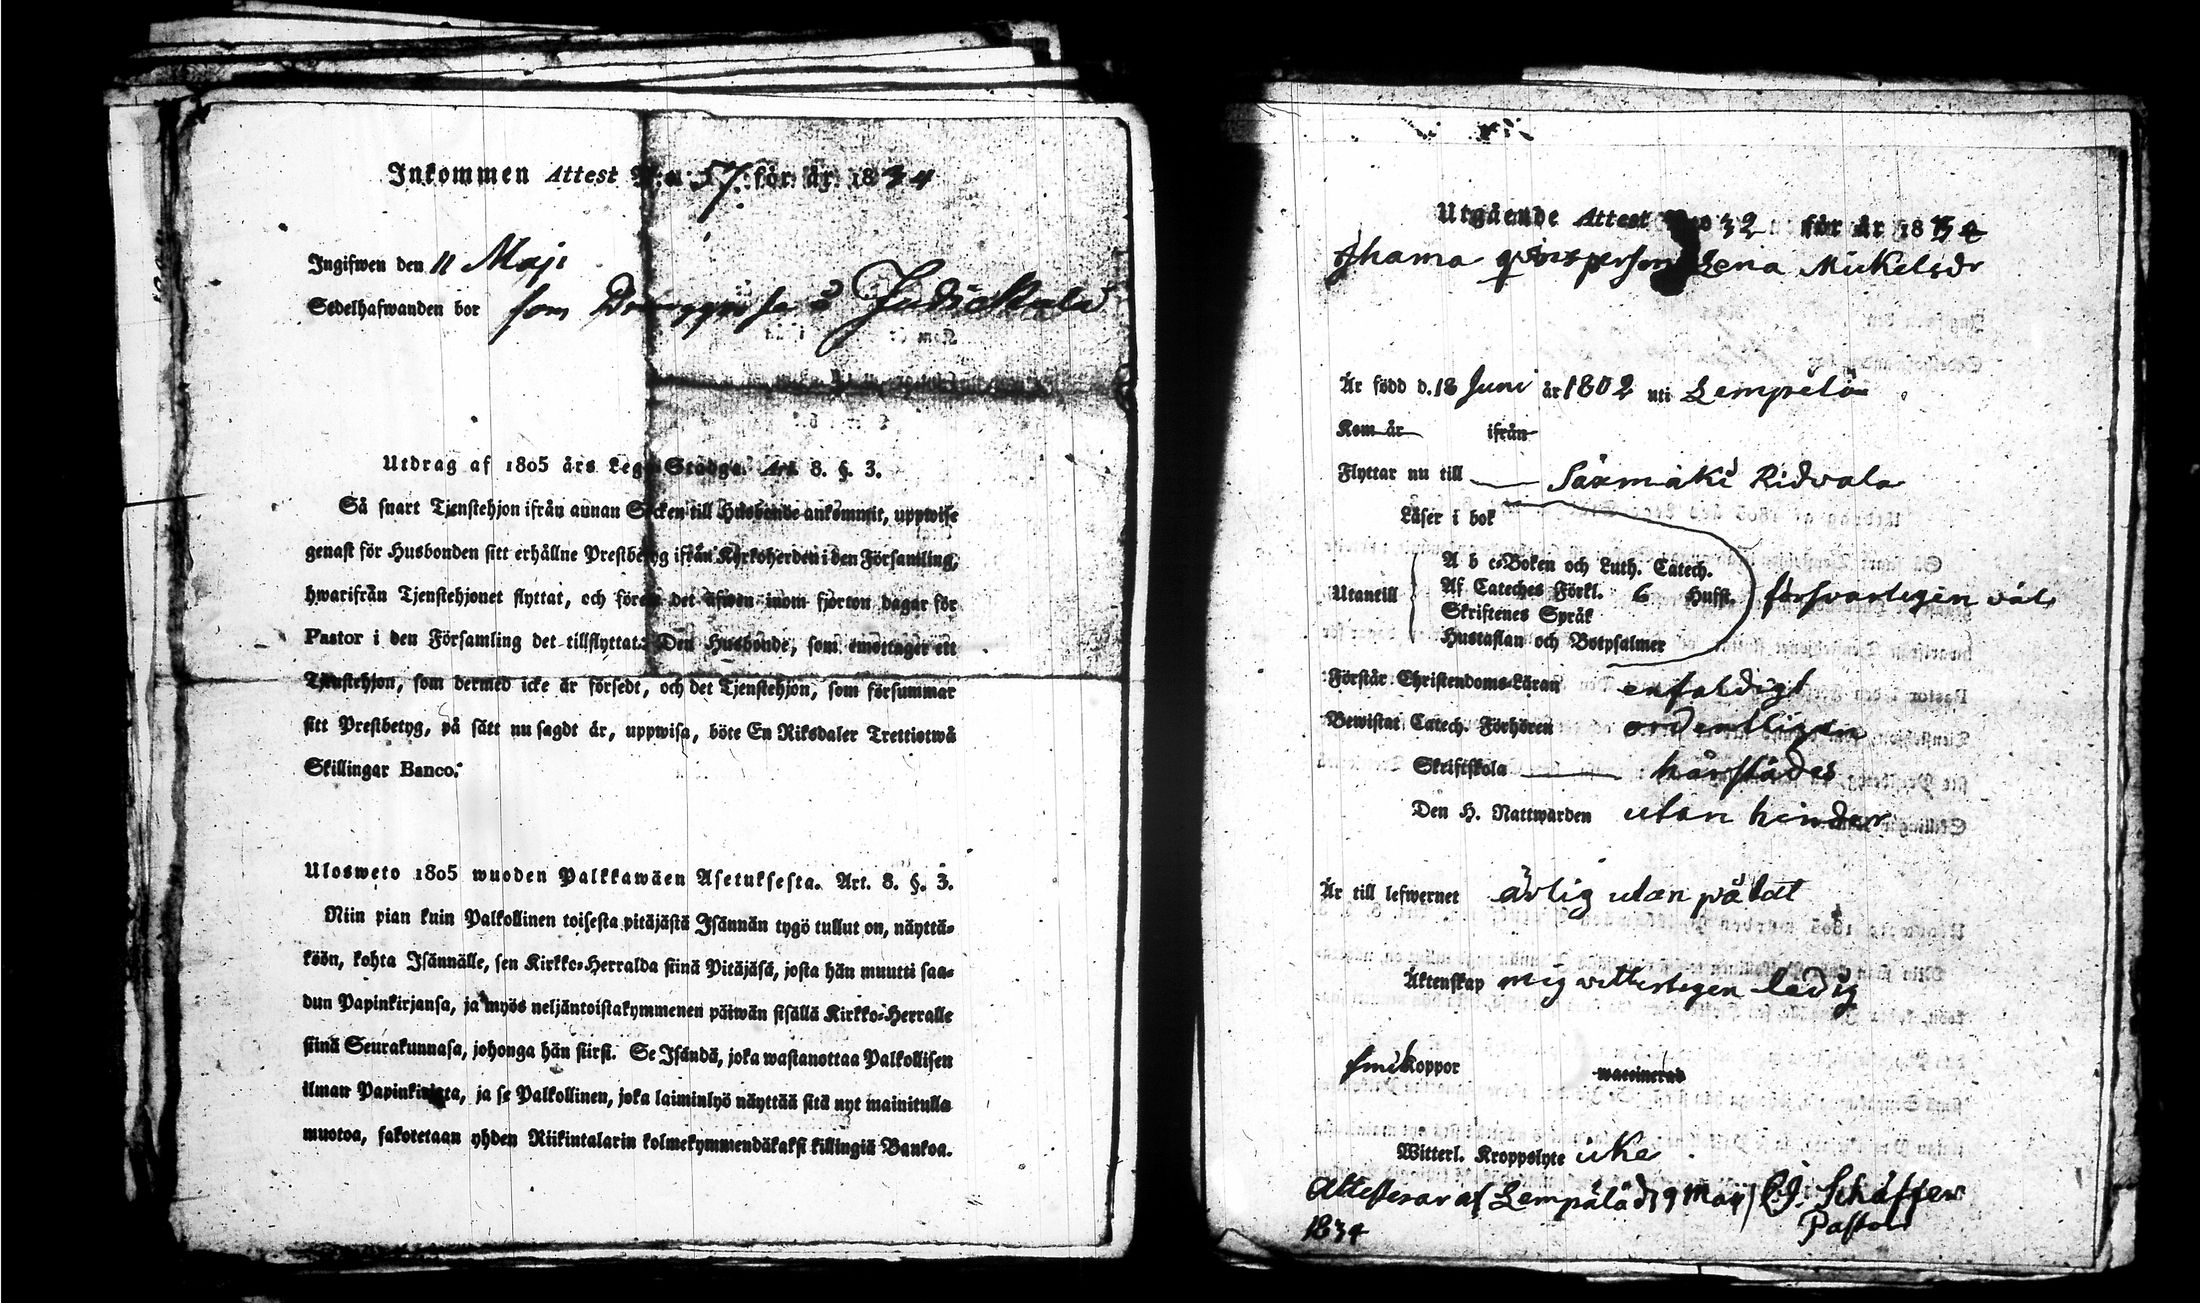 Inkommen Attest N:o 57 för år 1834
Ingifwen den 11 Maji
Sedelhafwanden bor som
Utdrag af 1805 års Lego-Stadga. Art. 8. §. 3.
Så snart Tjenstehjon ifrån annan Socken till Husbonde ankommit, uppwise
genast för Husbonden sitt erhållne Prestbetyg ifrån Kyrkoherden i den Församling,
hwarifrån Tjenstehjonet flyttat, och förete det äfwen inom fjorton dagar för
Pastor i den Församling det tillflyttat. Den Husbonde, som emottager ett
Tjenstehjon, som dermed icke är försedt, och det Tjenstehjon, som försummar
sitt Prestbetyg, på sätt nu sagdt är, uppwisa, böte En Riksdaler Trettiotwå
Skillingar Banco.
Ulosweto 1805 wuoden Palkkawäen Asetuksesta. Art. 8. §. 3.
Niin pian kuin Palkollinen toisesta pitäjästä Isännän tygö tullut on, näyttä-
köön, kohta Isännälle, sen Kirkko-Herralda siinä Pitäjäsä, josta hän muutti saa-
dun Papinkirjansa, ja myös neljäntoistakymmenen päiwän sisällä Kirkko-Herralle
siinä Seurakunnasa, johonga hän siirsi. Se Isändä, joka wastanottaa Palkollisen
ilman Papinkirjata, ja se Palkollinen, joka laiminlyö näyttää sitä nyt mainitulla
muotoa, sakotetaan yhden Riikintalarin kolmekymmendäkaksi killingiä Bankoa.
Utgående Attest N:o 32 för år 1834
qvinsperson Lena Mickelsdr
Är född d. 18 Juni år 1802 uti Lempelä
Kom år ifrån
Flyttar nu till Säxmäki Ridvala
Läser i bok
Utantill
A b c-Boken och Luth. Catech.
Af Cateches Förkl. 6 Hufst.
Skriftenes Språk
Hustaflan och Botpsalmer
försvarligen väl
Förstår Christendoms-Läran enfaldigt
Bewistat Catech. Förhören ordentligen
Skriftskola härstädes
Den H. Nattwarden utan hinder
Är till lefwernet ärlig utan påtal
Äktenskap mig vitterligen ledig
Koppor waccinerad
Witterl. Kroppslyte icke
Attesterar af Lempälä d. 9 Maij C.J. Schäffer
1834 Pastor